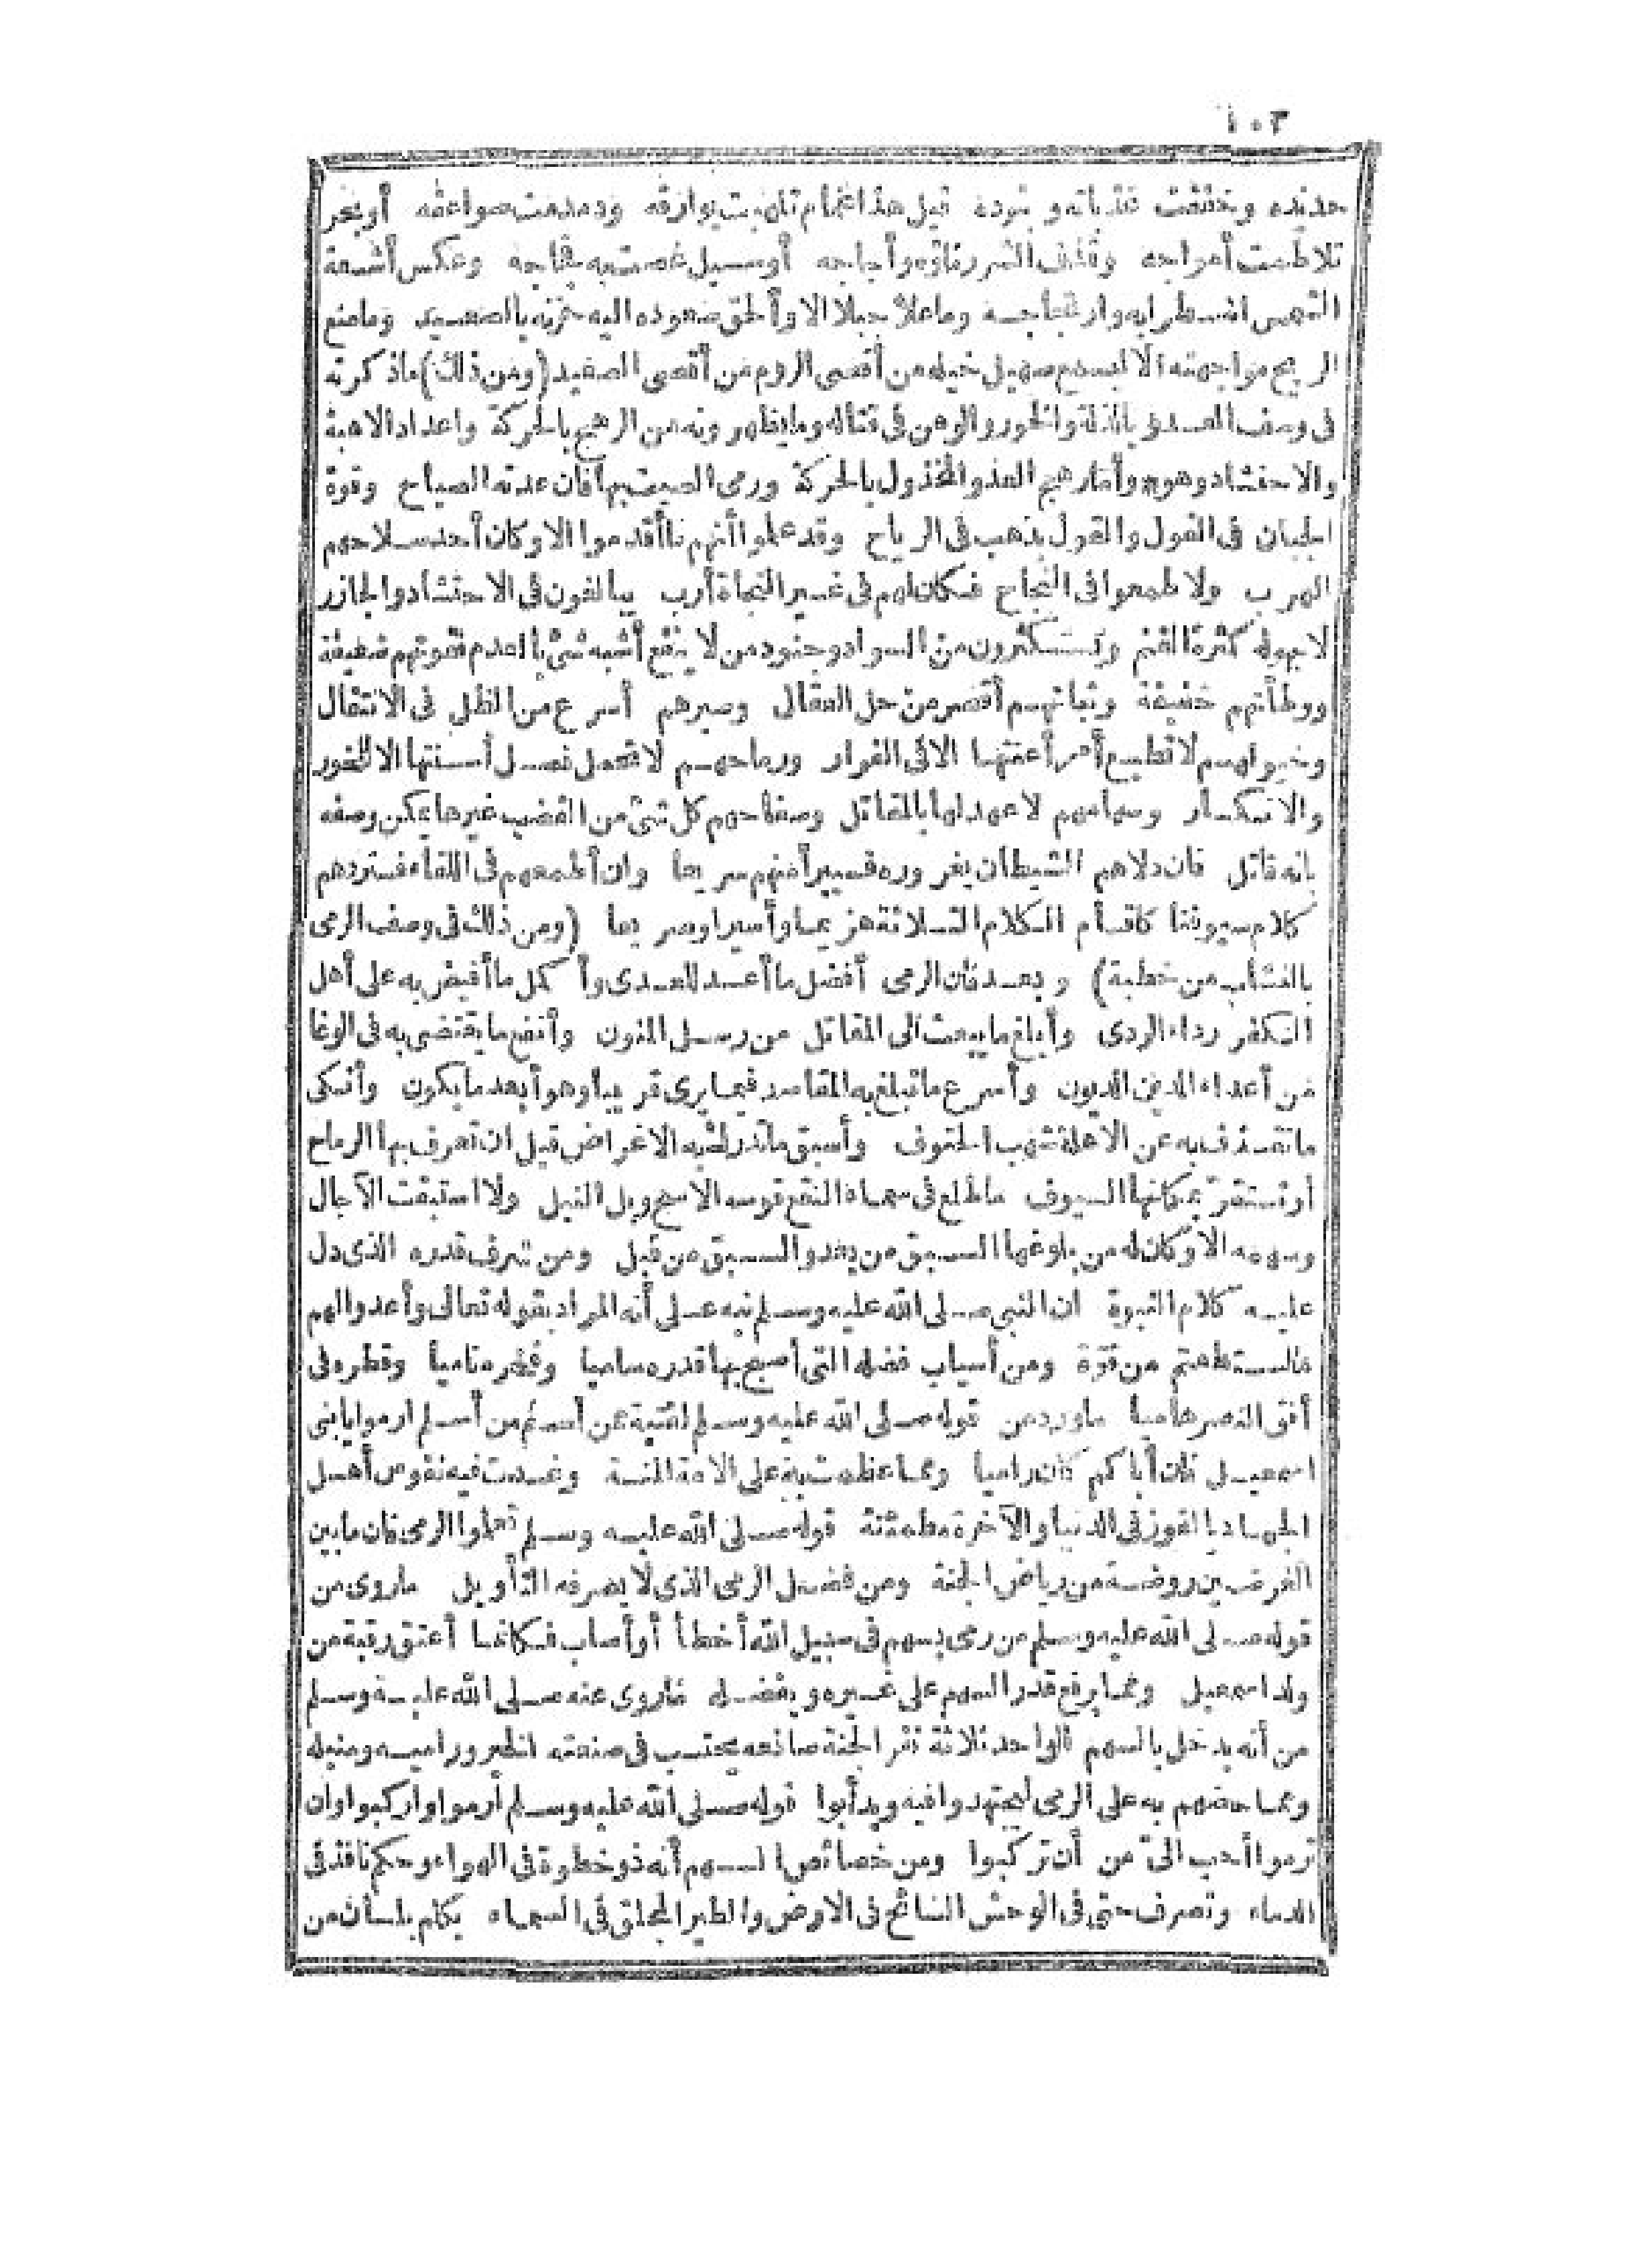 ١٠٣
حديده وخفقت عذباته وبنوده قيل هذا غمام تلهبت بوارقه ودمدمت صواعقه أو بحر
تلاطمت أمواجه وقذف الشرر أو سيل غصت به وعكس أشعة
الشمس اضطرابه وارتجاجه وما علا جبلا الا وألحق صعوده اليه حزنه بالصعيد وما منع
الريح مواجهته الا ليسمع صهيل خيله من أقصى الروم من أقصى الصعيد (ومن ذلك) ما ذكرته
في وصف العدو بالذلة والخور والوهن في قتاله وما يظهرونه من الرهج بالحركة واعداد الاهبة
والاحتشاد وهو وأما رهج العدو المخذول بالحركة ورمى الصيت بها فان عدته الصياح وقوة
الجبان في القول والقول يذهب في الرياح وقد علموا أنهم ما أقدموا الا وكان أحد سلاحهم
الهرب ولا طمعوا في النجاح فكان لهم في غير النجاة أرب يبالغون في الاحتشاد والجازر
لا يهوله كثرة الغنم ويستكثرون من السواد وجنود من لا ينفع أشبه شئ بالعدم فقوتهم ضعيفة
ووطأتهم خفيفة وثباتهم أقصر من حل العقال وصبرهم أسرع من الظل في الانتقال
وخيولهم لا تطيع أمر أعنتها الا في الفرار ورماحهم لا تحمل نصل أسنتها الا للخور
والانكسار وسهامهم لا عهد لها بالمقاتل وصفاحهم كل شئ من القضب غيرها يمكن وصفه
بانه قاتل فان دلاهم الشيطان بغروره فسيبرأ منهم سريعا وان أطمعهم في اللقاء فستردهم
كلام سيوفنا كاقسام الكلام الثلاثة هزيما وأسيرا وصريعا (ومن ذلك في وصف الرمى
بالنشاب من خطبة) وبعد فان الرمى أفضل ما أعد للعدى وأكمل ما أفيض به على أهل
الكفر رداء الردى وأبلغ ما يبعث الى المقاتل من رسل المنون وأنفع ما يقتضى به في الوغا
من أعداء الدين الديون وأسرع ما تبلغ به المقاصد فيما يرى قريبا وهو أبعد ما يكون وأنكى
ما تقذف به عن الاهلة شهب الحتوف وأسبق ما تدرك به الاغراض قبل ان تعرف بها الرماح
أو تستقر بمكانها السيوف ما طلع في سماء النقع قوسه الا سح وبل النبل ولا استبقت الآجال
وسهمه الا وكان له من بلوغها السبق من بعد والسبق من قبل ومن شرف قدره الذى دل
عليه كلام النبوة ان النبي صلى الله عليه وسلم نبه على أنه المراد بقوله تعالى وأعدوا لهم
ما استطعتم من قوة ومن أسباب فضله التي أصبح بها قدره ساميا وفخره ناميا وقطره في
أفق النصر هاميا ما ورد من قوله صلى الله عليه وسلم لفتية من أسلم ارموا يا بنى
اسمعيل فان أباكم كان راميا ومما عظمت به على الامة المنة وغدت فيه نفوس أهل
الجهاد بالفوز في الدنيا والآخرة مطمئنة قوله صلى الله عليه وسلم تعلموا الرمى فان ما بين
الغرضين روضة من رياض الجنة ومن فضل الرمى الذى لا يصرفه التأويل ما روى من
قوله صلى الله عليه وسلم من رمى بسهم في سبيل الله أخطأ أو أصاب فكانما أعتق رقبة من
ولد اسمعيل ومما يرفع قدر السهم على غيره ويفضله ما روى عنه صلى الله عليه وسلم
من أنه يدخل بالسهم الواحد ثلاثة نفر الجنة صانعه يحتسب في صنعته الخير وراميه ومنبله
ومما حضهم به على الرمى ليجتهدوا فيه ويدأبوا قوله صلى الله عليه وسلم ارموا واركبوا وان
ترموا أحب الى من أن تركبوا ومن خصائص السهم أنه ذو خطوة في الهواء وحكم نافذ في
الدماء وتصرف حتى في الوحش السانح في الارض والطير المحلق في السماء يكلم بلسان من